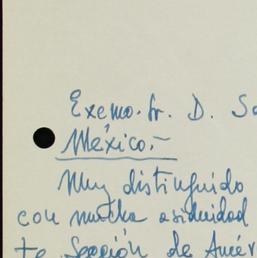 Exemo. Sr. D. Sa
México.-
Muy distinguido
con mucha asiduidad
te Sección de Amér